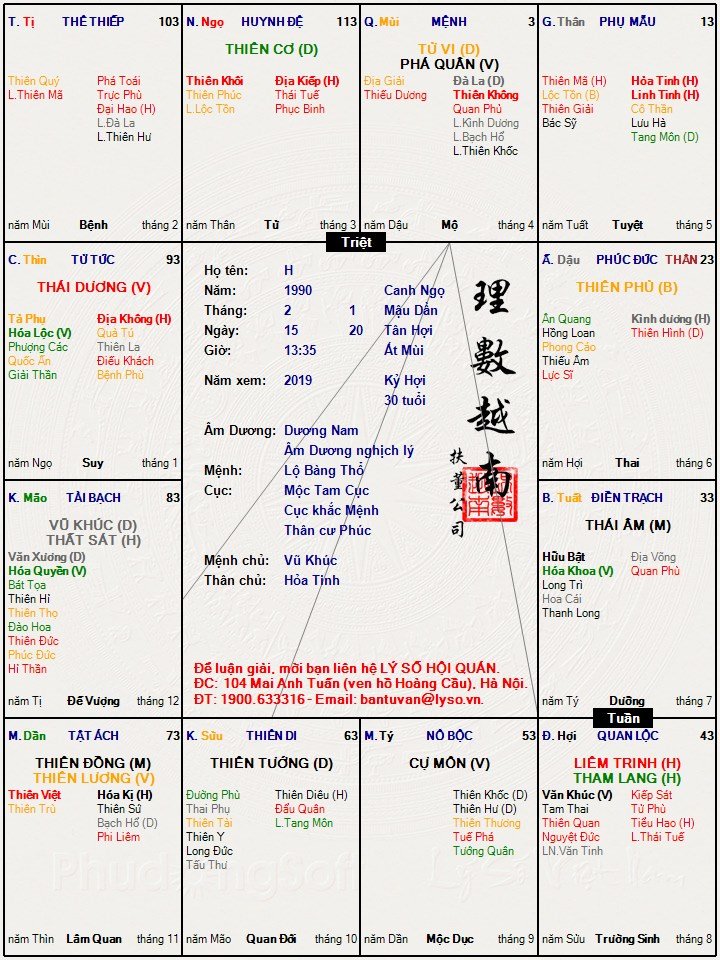 T. Tị THÊ THIẾP 103
Thiên Quý Phá Toái
L.Thiên Mã Trực Phù
Đại Hao (H)
L.Đà La
L.Thiên Hư
năm Mùi Bệnh tháng 2
N. Ngọ HUYNH ĐỆ 113
THIÊN CƠ (D)
Thiên Khôi Địa Kiếp (H)
Thiên Phúc Thái Tuế
L.Lộc Tồn Phục Binh
năm Thân Tử tháng 3
Q. Mùi MỆNH 3
TỬ VI (D)
PHÁ QUÂN (V)
Địa Giải Đà La (D)
Thiếu Dương Thiên Không
Quan Phủ
L.Kình Dương
L.Bạch Hổ
L.Thiên Khốc
năm Dậu Mộ tháng 4
G. Thân PHỤ MẪU 13
Thiên Mã (H) Hỏa Tinh (H)
Lộc Tồn (B) Linh Tinh (H)
Thiên Giải Cô Thần
Bác Sỹ Lưu Hà
Tang Môn (D)
năm Tuất Tuyệt tháng 5
Triệt
C. Thìn TỬ TỨC 93
THÁI DƯƠNG (V)
Tả Phụ Địa Không (H)
Hóa Lộc (V) Quả Tú
Phượng Các Thiên La
Quốc Ấn Điếu Khách
Giải Thần Bệnh Phù
năm Ngọ Suy tháng 1
Họ tên: H
Năm: 1990 Canh Ngọ
Tháng: 2 1 Mậu Dần
Ngày: 15 20 Tân Hợi
Giờ: 13:35 Ất Mùi
Năm xem: 2019 Kỷ Hợi
30 tuổi
Âm Dương: Dương Nam
Âm Dương nghịch lý
Mệnh: Lộ Bàng Thổ
Cục: Mộc Tam Cục
Cục khắc Mệnh
Thân cư Phúc
Mệnh chủ: Vũ Khúc
Thân chủ: Hỏa Tinh
理數越南
扶董公司
Để luận giải, mời bạn liên hệ LÝ SỐ HỘI QUÁN.
ĐC: 104 Mai Anh Tuấn (ven hồ Hoàng Cầu), Hà Nội.
ĐT: 1900.633316 - Email: bantuvan@lyso.vn.
Ấ. Dậu PHÚC ĐỨC THÂN 23
THIÊN PHỦ (B)
Ân Quang Kình dương (H)
Hồng Loan Thiên Hình (D)
Phong Cáo
Thiếu Âm
Lực Sĩ
năm Hợi Thai tháng 6
K. Mão TÀI BẠCH 83
VŨ KHÚC (D)
THẤT SÁT (H)
Văn Xương (D)
Hóa Quyền (V)
Bát Tọa
Thiên Hỉ
Thiên Thọ
Đào Hoa
Thiên Đức
Phúc Đức
Hỉ Thần
năm Tị Đế Vượng tháng 12
B. Tuất ĐIỀN TRẠCH 33
THÁI ÂM (M)
Hữu Bật Địa Võng
Hóa Khoa (V) Quan Phù
Long Trì
Hoa Cái
Thanh Long
năm Tý Dưỡng tháng 7
Tuần
M. Dần TẬT ÁCH 73
THIÊN ĐỒNG (M)
THIÊN LƯƠNG (V)
Thiên Việt Hóa Kị (H)
Thiên Trù Thiên Sứ
Bạch Hổ (D)
Phi Liêm
năm Thìn Lâm Quan tháng 11
K. Sửu THIÊN DI 63
THIÊN TƯỚNG (D)
Đường Phù Thiên Diêu (H)
Thai Phụ Đẩu Quân
Thiên Tài L.Tang Môn
Thiên Y
Long Đức
Tấu Thư
năm Mão Quan Đới tháng 10
M. Tý NÔ BỘC 53
CỰ MÔN (V)
Thiên Khốc (D)
Thiên Hư (D)
Thiên Thương
Tuế Phá
Tướng Quân
năm Dần Mộc Dục tháng 9
Đ. Hợi QUAN LỘC 43
LIÊM TRINH (H)
THAM LANG (H)
Văn Khúc (V) Kiếp Sát
Tam Thai Tử Phù
Thiên Quan Tiểu Hao (H)
Nguyệt Đức L.Thái Tuế
LN.Văn Tinh
năm Sửu Trường Sinh tháng 8